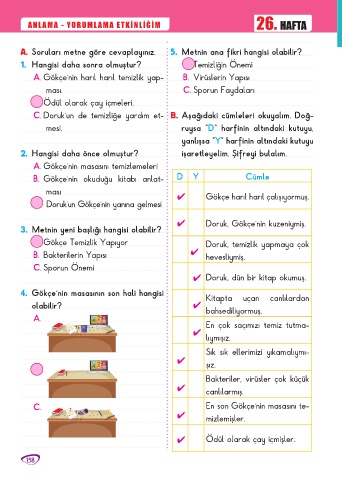 ANLAMA - YORUMLAMA ETKİNLİĞİM
26. HAFTA
A. Soruları metne göre cevaplayınız.
1. Hangisi daha sonra olmuştur?
A. Gökçe'nin harıl harıl temizlik yap-
ması
Ödül olarak çay içmeleri.
C. Doruk'un de temizliğe yardım et-
mesi.
2. Hangisi daha önce olmuştur?
A. Gökçe'nin masasını temizlemeleri
B. Gökçe'nin okuduğu kitabı anlat-
ması
Doruk'un Gökçe'nin yanına gelmesi
3. Metnin yeni başlığı hangisi olabilir?
Gökçe Temizlik Yapıyor
B. Bakterilerin Yapısı
C. Sporun Önemi
4. Gökçe'nin masasının son hali hangisi
olabilir?
A.
C.
5. Metnin ana fikri hangisi olabilir?
Temizliğin Önemi
B. Virüslerin Yapısı
C. Sporun Faydaları
B. Aşağıdaki cümleleri okuyalım. Doğ-
ruysa "D" harfinin altındaki kutuyu,
yanlışsa "Y" harfinin altındaki kutuyu
işaretleyelim. Şifreyi bulalım.
D Y Cümle
✔ Gökçe harıl harıl çalışıyormuş.
✔ Doruk, Gökçe'nin kuzeniymiş.
Doruk, temizlik yapmaya çok
✔ hevesliymiş.
✔ Doruk, dün bir kitap okumuş.
Kitapta uçan canlılardan
✔ bahsediliyormuş.
En çok saçımızı temiz tutma-
✔ lıymışız.
Sık sık ellerimizi yıkamalıymı-
✔ şız.
Bakteriler, virüsler çok küçük
✔ canlılarmış.
En son Gökçe'nin masasını te-
✔ mizlemişler.
✔ Ödül olarak çay içmişler.
158